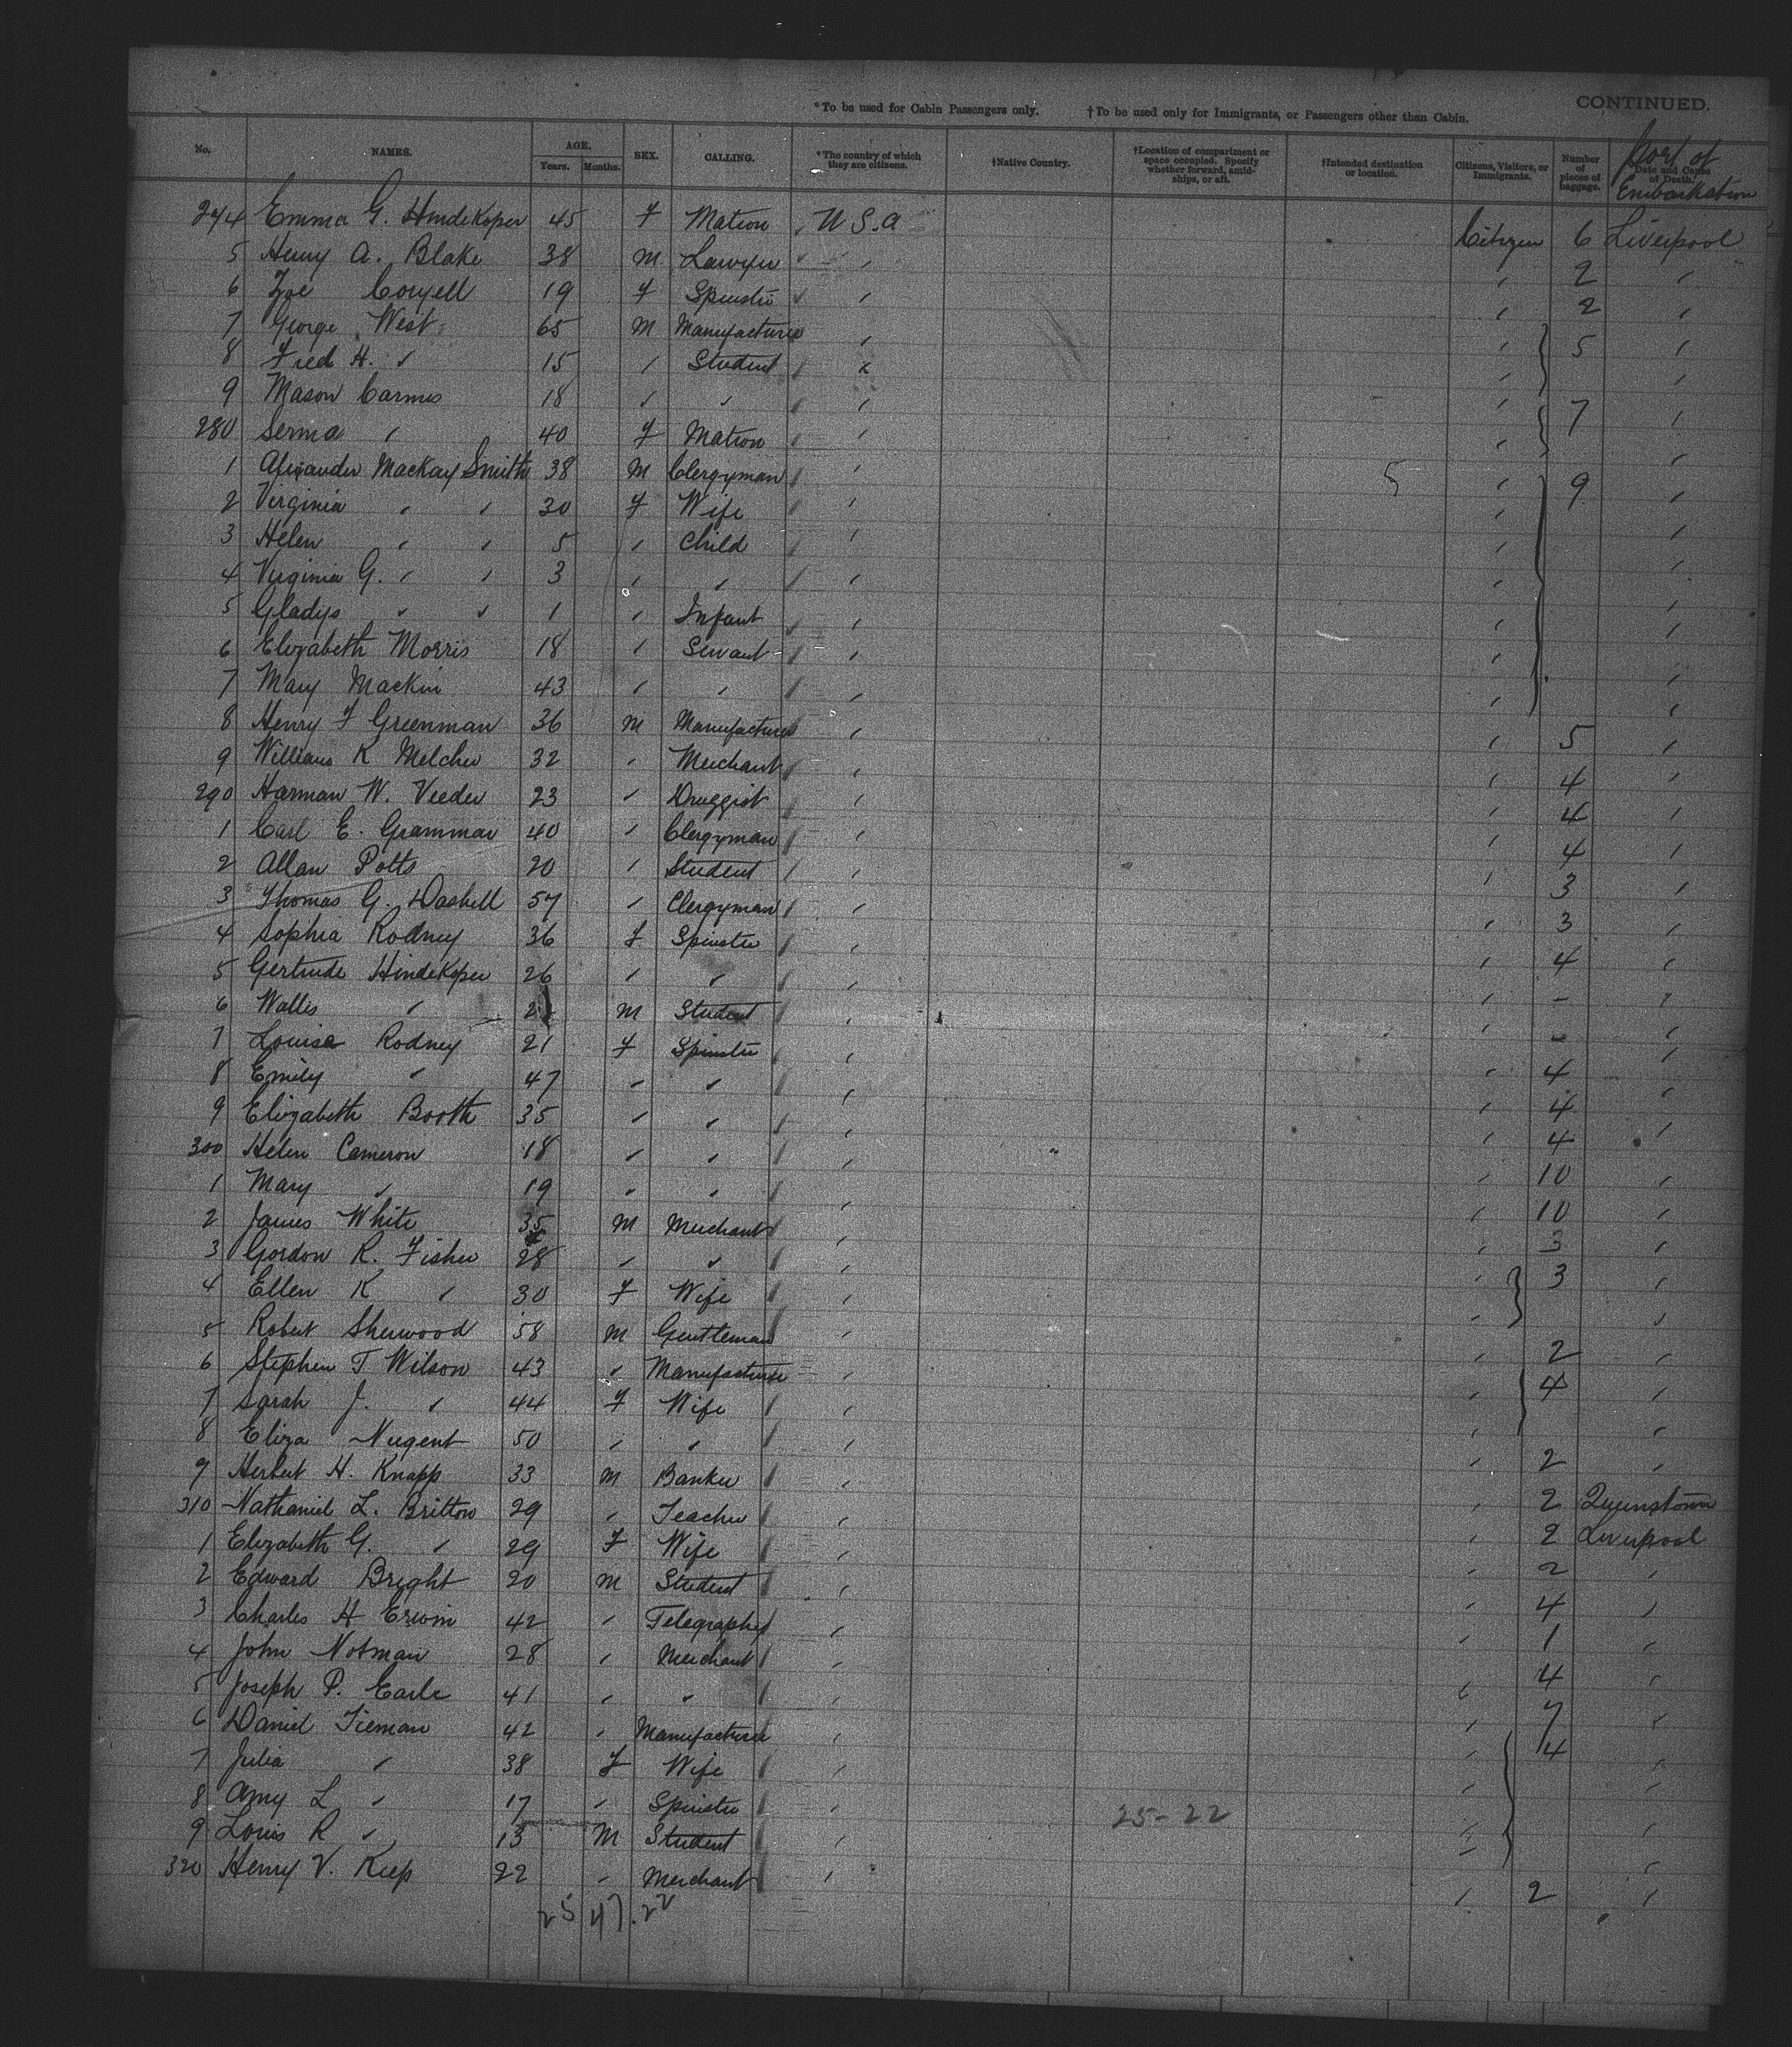 CONTINUED.
*To be used for Cabin Passengers only. †To be used only for Immigrants, or Passengers other than Cabin.
No. NAMES. AGE. Years. Months. SEX. CALLING. *The country of which they are citizens. †Native Country. †Location of compartment or space occupied. Specify whether forward, amidships, or aft. †Intended destination or location. Citizens, Visitors, or Immigrants. Number of pieces of baggage. Date and Cause of Death. Port of Embarkation
274 Emma G. Hindekoper 45 F Matron U S.a Citizen 6 Liverpool
5 Henry A. Blake 38 M Lawyer " " 2 "
6 Zoe Coryell 19 F Spinster " " 2 "
7 George West 65 M Manufacturer " " 5 "
8 Fred H. " 15 " Student " " "
9 Mason Carmes 18 " " " " 7 "
280 Serma " 40 F Matron " " "
1 Alexander Mackay Smith 38 M Clergyman " 5 " 9 "
2 Virginia " " 30 F Wife " " "
3 Helen " " 5 " Child " " "
4 Virginia G. " " 3 " " " " "
5 Gladys " " 1 " Infant " " "
6 Elizabeth Morris 18 " Servant " " "
7 Mary Mackin 43 " " " " "
8 Henry F Greenman 36 M Manufacturer " " 5 "
9 William K Melcher 32 " Merchant " " 4 "
290 Harman W. Veeder 23 " Druggist " " 4 "
1 Carl E. Grammar 40 " Clergyman " " 4 "
2 Allan Potts 20 " Student " " 3 "
3 Thomas G. Dashell 57 " Clergyman " " 3 "
4 Sophia Rodney 36 F Spinster " " 4 "
5 Gertrude Hindekoper 26 " " " " - "
6 Wallis " M Student " " - "
7 Louisa Rodney 21 F Spinster " " 4 "
8 Emily " 47 " " " " 4 "
9 Elizabeth Booth 35 " " " " 4 "
300 Helen Cameron 18 " " " " 10 "
1 Mary " 19 " " " " 10 "
2 James White 35 M Merchant " " 3 "
3 Gordon R. Fisher 28 " " " " 3 "
4 Ellen K " 30 F Wife " " "
5 Robert Sherwood 58 M Gentleman " " 2 "
6 Stephen T Wilson 43 " Manufacturer " " 4 "
7 Sarah J. " 44 F Wife " " "
8 Eliza Nugent 50 " " " " 2 "
9 Herbert H. Knapp 33 M Banker " " 2 Queenstown
310 Nathaniel L. Britton 29 " Teacher " " 2 Liverpool
1 Elizabeth G. " 29 F Wife " " 2 "
2 Edward Bright 20 M Student " " 4 "
3 Charles H Erwin 42 " Telegrapher " " 1 "
4 John Notman 28 " Merchant " " 4 "
5 Joseph P. Earle 41 " " " " 7 "
6 Daniel Tieman 42 " Manufacturer " " 4 "
7 Julia " 38 F Wife " " "
8 Amy L " 17 " Spinster " " "
9 Louis R " 13 M Student " 25-22 " "
320 Henry V. Keep 22 " Merchant " " 2 "
25 47. 22